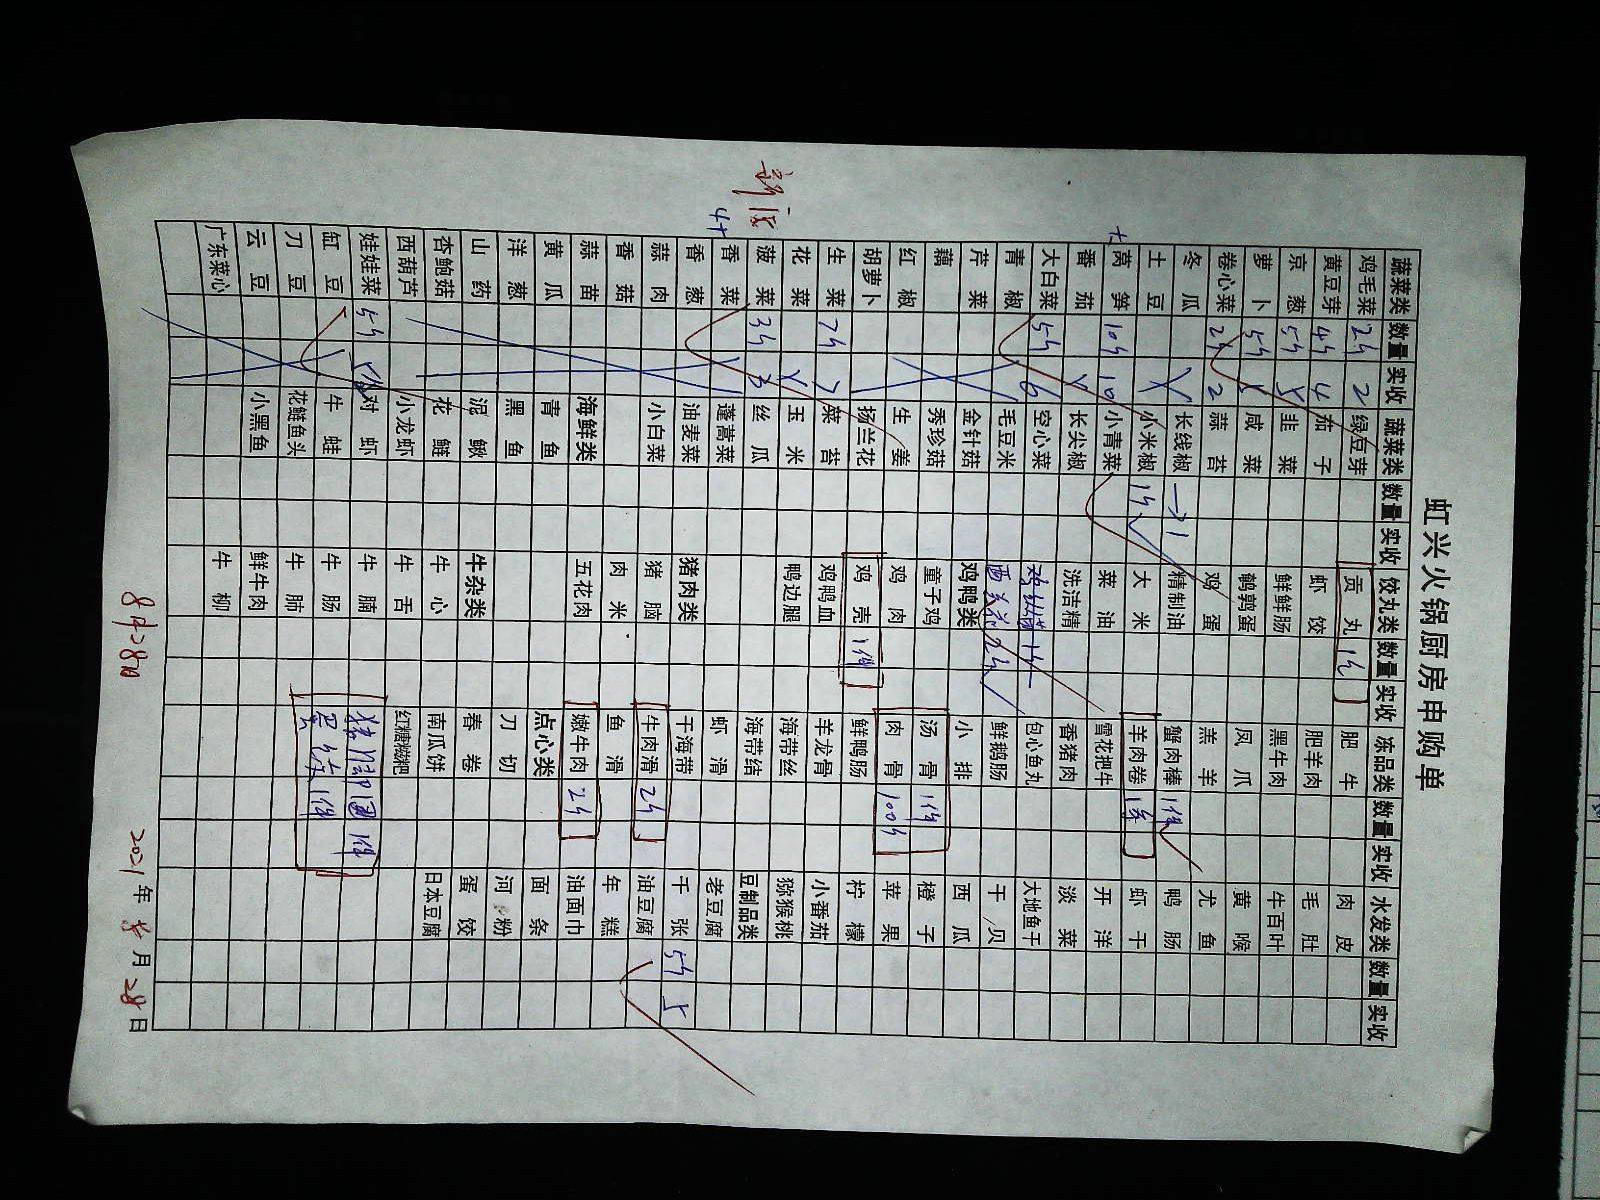 虹兴火锅厨房申购单
蔬菜类 数量 实收 蔬菜类 数量 实收 饺丸类 数量 实收 冻品类 数量 实收 水发类 数量 实收
鸡毛菜 2斤 2 绿豆芽 贡丸 1件 肥牛 肉皮
黄豆芽 4斤 4 茄子 虾饺 肥羊肉 毛肚
京葱 5斤 韭菜 鲜鲜肠 黑牛肉 牛百叶
萝卜 5斤 咸菜 鹌鹑蛋 凤爪 黄喉
卷心菜 2斤 2 蒜苔 鸡蛋 羔羊 尤鱼
冬瓜 长线椒 精制油 蟹肉棒 1件 鸭肠
土豆 小米椒 1斤 大米 羊肉卷 1件 虾干
莴笋 10斤 10 小青菜 菜油 雪花把牛 开洋
番茄 长尖椒 洗洁精 香猪肉 淡菜
大白菜 5斤 6 空心菜 包心鱼丸 大地鱼干
青椒 毛豆米 西兰花 2斤 鲜鹅肠 干贝
芹菜 金针菇 鸡鸭类 小排 西瓜
藕 秀珍菇 童子鸡 汤骨 1件 橙子
红椒 生姜 鸡肉 肉骨 100斤 苹果
胡萝卜 扬兰花 鸡壳 1件 鲜鸭肠 柠檬
生菜 7斤 7 菜苔 鸡鸭血 羊龙骨 小番茄
花菜 玉米 鸭边腿 海带丝 猕猴桃
菠菜 3斤 3 丝瓜 海带结 豆制品类
香菜 蓬蒿菜 虾滑 老豆腐
香葱 油麦菜 猪肉类 干海带 千张 5斤 5
蒜肉 小白菜 猪脑 牛肉滑 2斤 油豆腐
香菇 肉米 鱼滑 年糕
蒜苗 海鲜类 五花肉 嫩牛肉 2斤 油面巾
黄瓜 青鱼 点心类 面条
洋葱 黑鱼 刀切 河粉
山药 泥鳅 牛杂类 春卷 蛋饺
杏鲍菇 花鲢 牛心 南瓜饼 日本豆腐
西葫芦 小龙虾 牛舌 红糖糍粑
娃娃菜 5斤 对虾 牛腩 猪脚圈 1件
缸豆 牛蛙 牛肠 1件
刀豆 花鲢鱼头 牛肺
云豆 小黑鱼 鲜牛肉
广东菜心 牛柳
8月28日 2021年8月28日